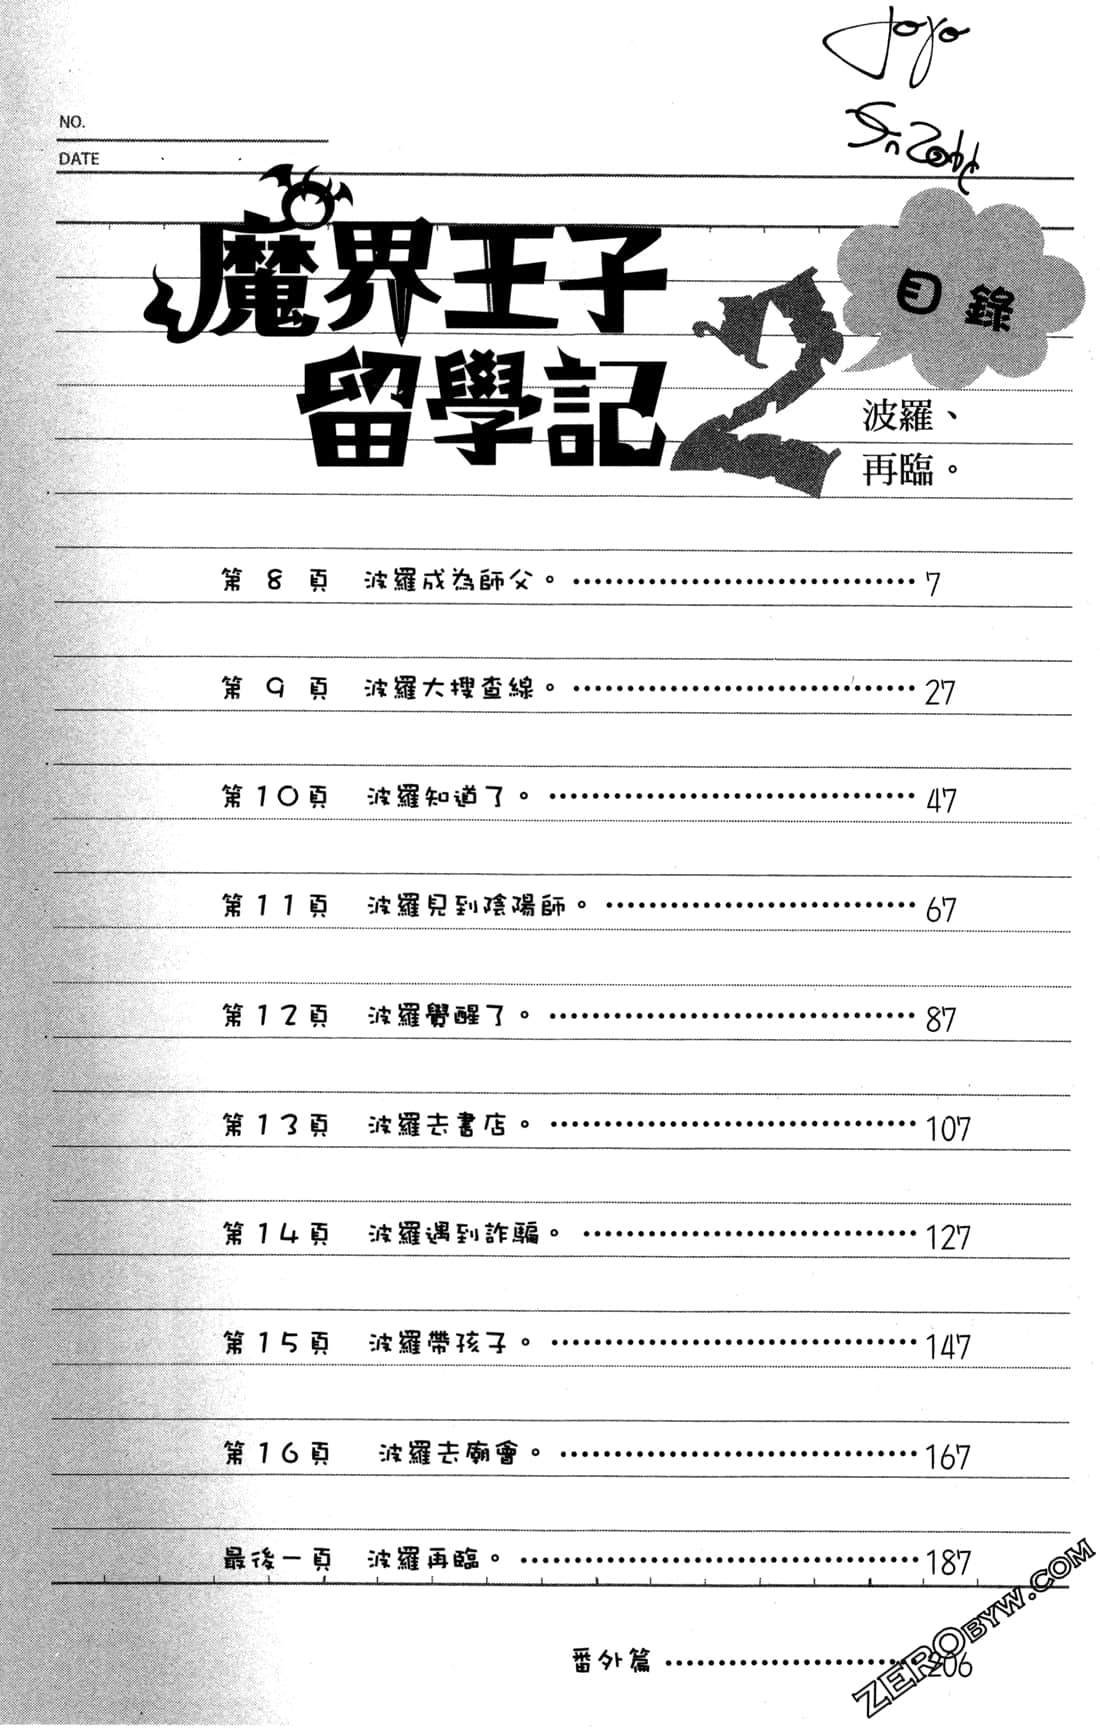 NO.
DATE
魔界王子
留學記2
目錄
波羅、
再臨。
第8頁 波羅成為師父。 7
第9頁 波羅大搜查線。 27
第10頁 波羅知道了。 47
第11頁 波羅見到陰陽師。 67
第12頁 波羅覺醒了。 87
第13頁 波羅去書店。 107
第14頁 波羅遇到詐騙。 127
第15頁 波羅帶孩子。 147
第16頁 波羅去廟會。 167
最後一頁 波羅再臨。 187
番外篇 206
ZEROBYW.COM